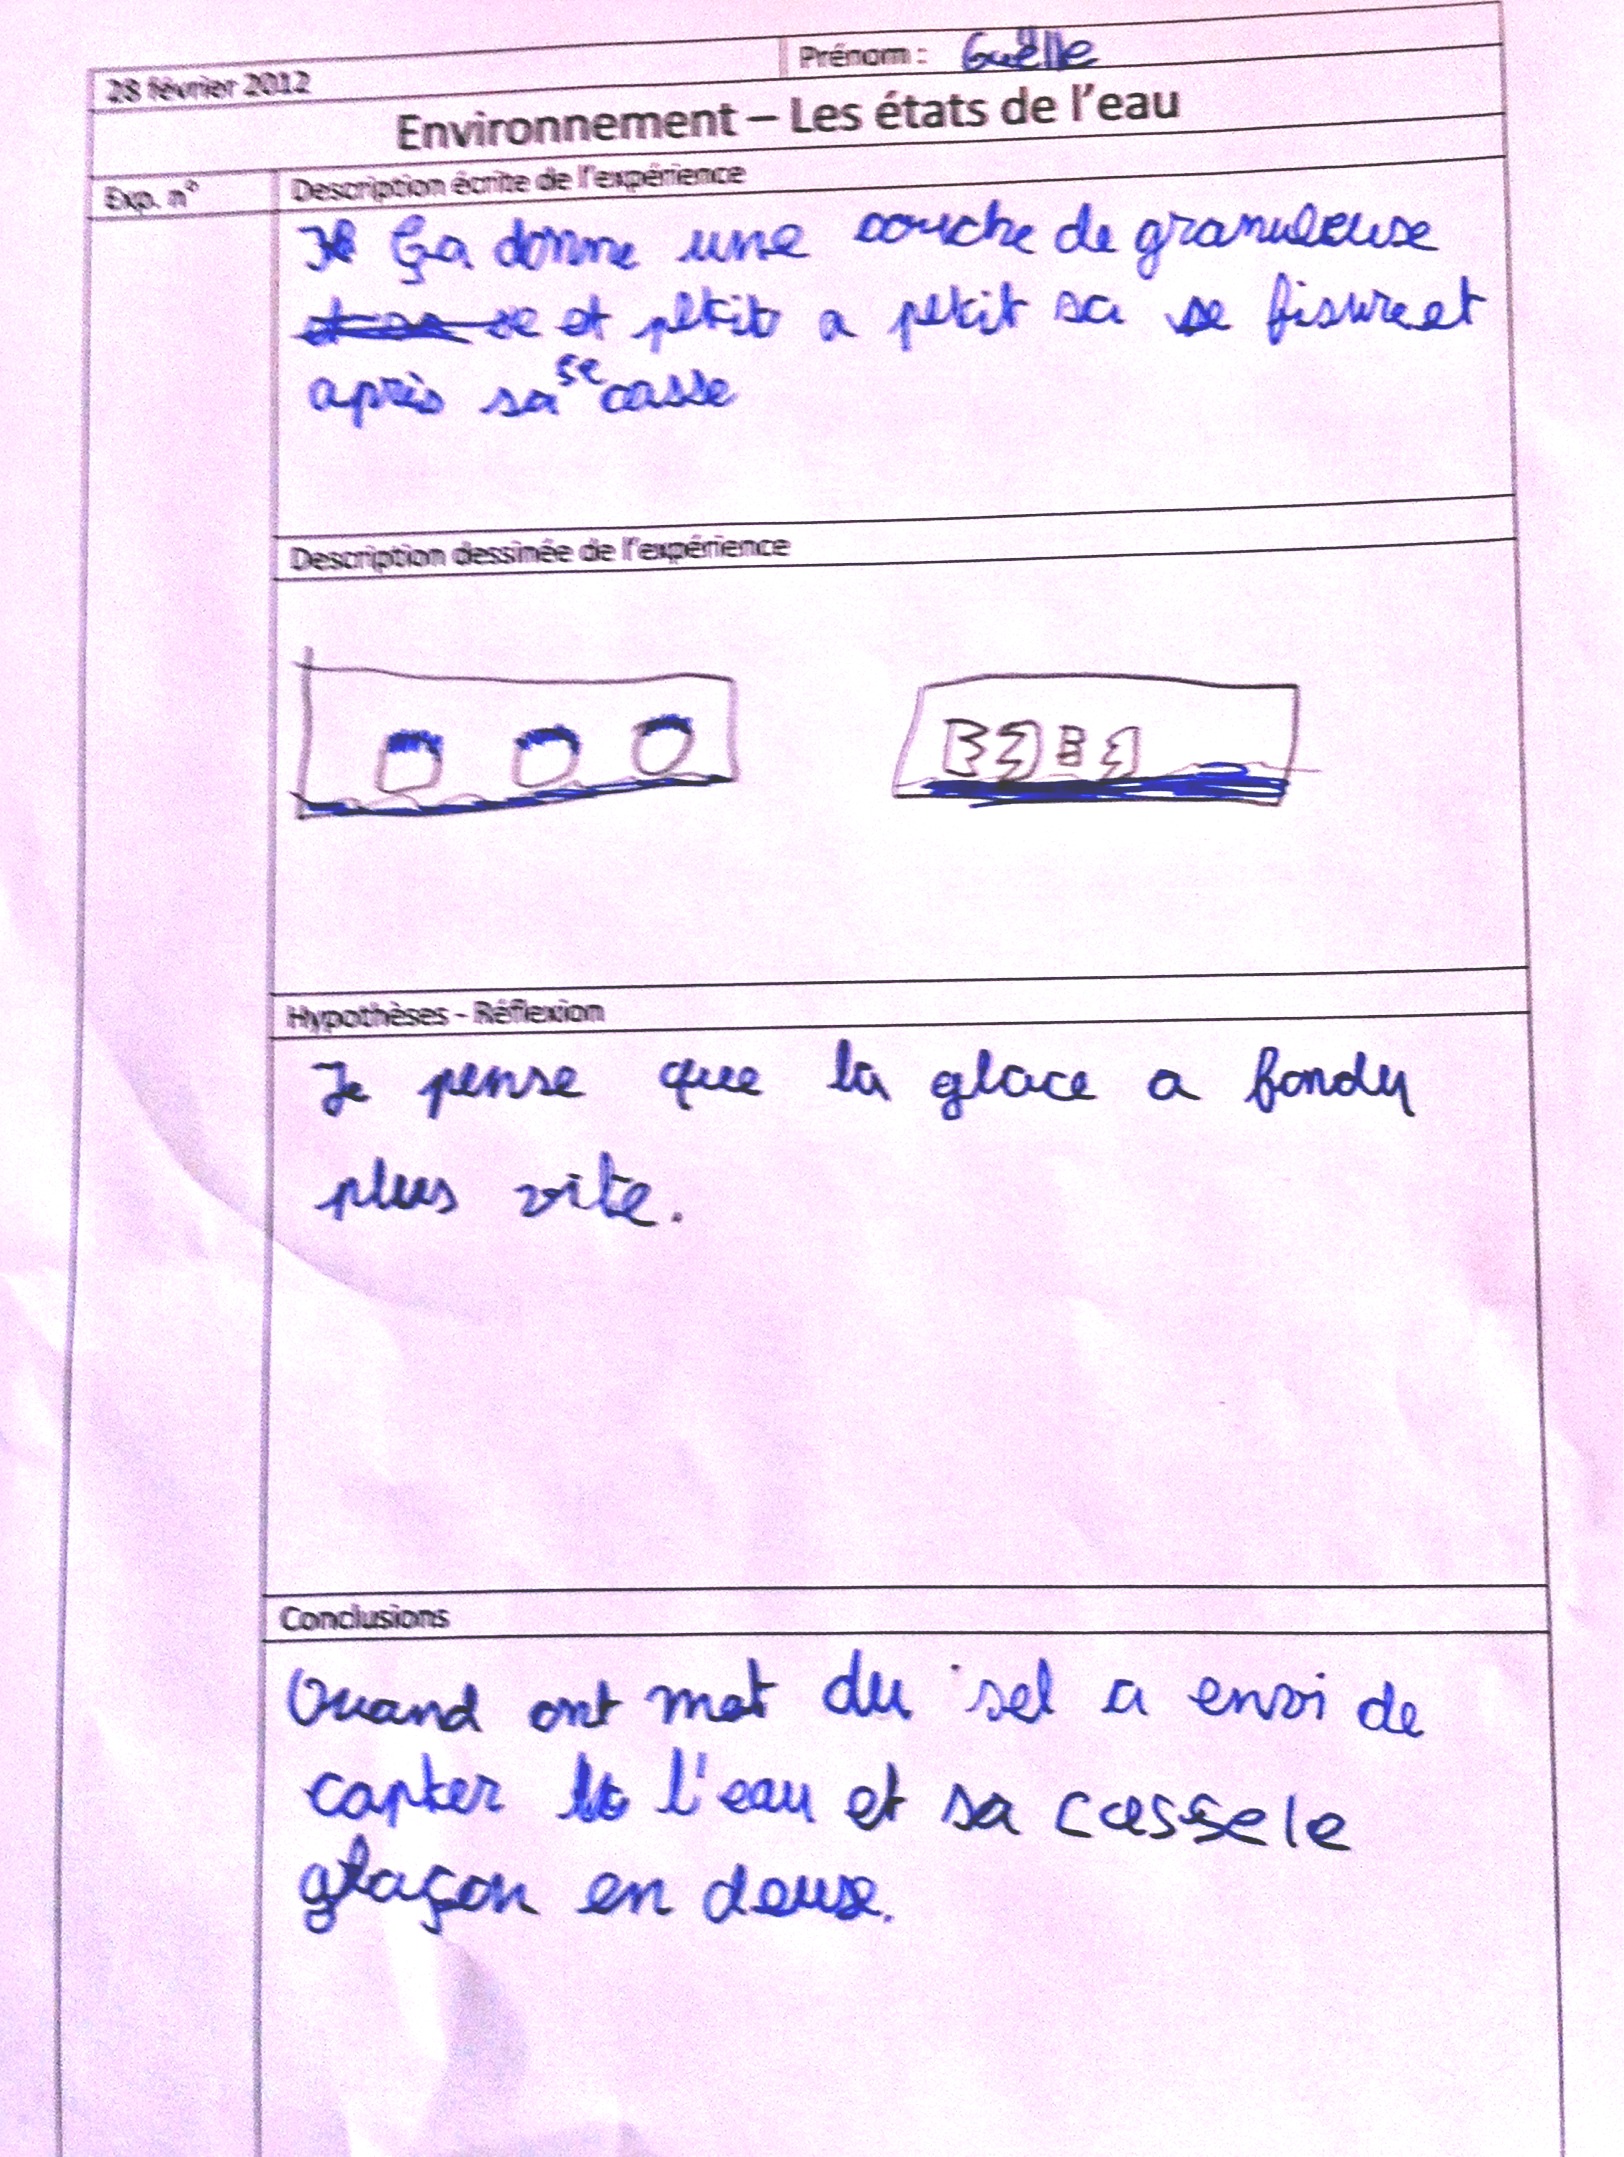 28 février 2012
Prénom : Guëlle
Environnement – Les états de l'eau
Exp. n°
Description écrite de l'expérience
Ça donne une couche de granuleuse
se et petit a petit sa se fissure et
après sa se casse
Description dessinée de l'expérience
Hypothèses - Réflexion
Je pense que la glace a fondu
plus vite.
Conclusions
Quand ont met du sel a envi de
capter l'eau et sa casse le
glaçon en deux.